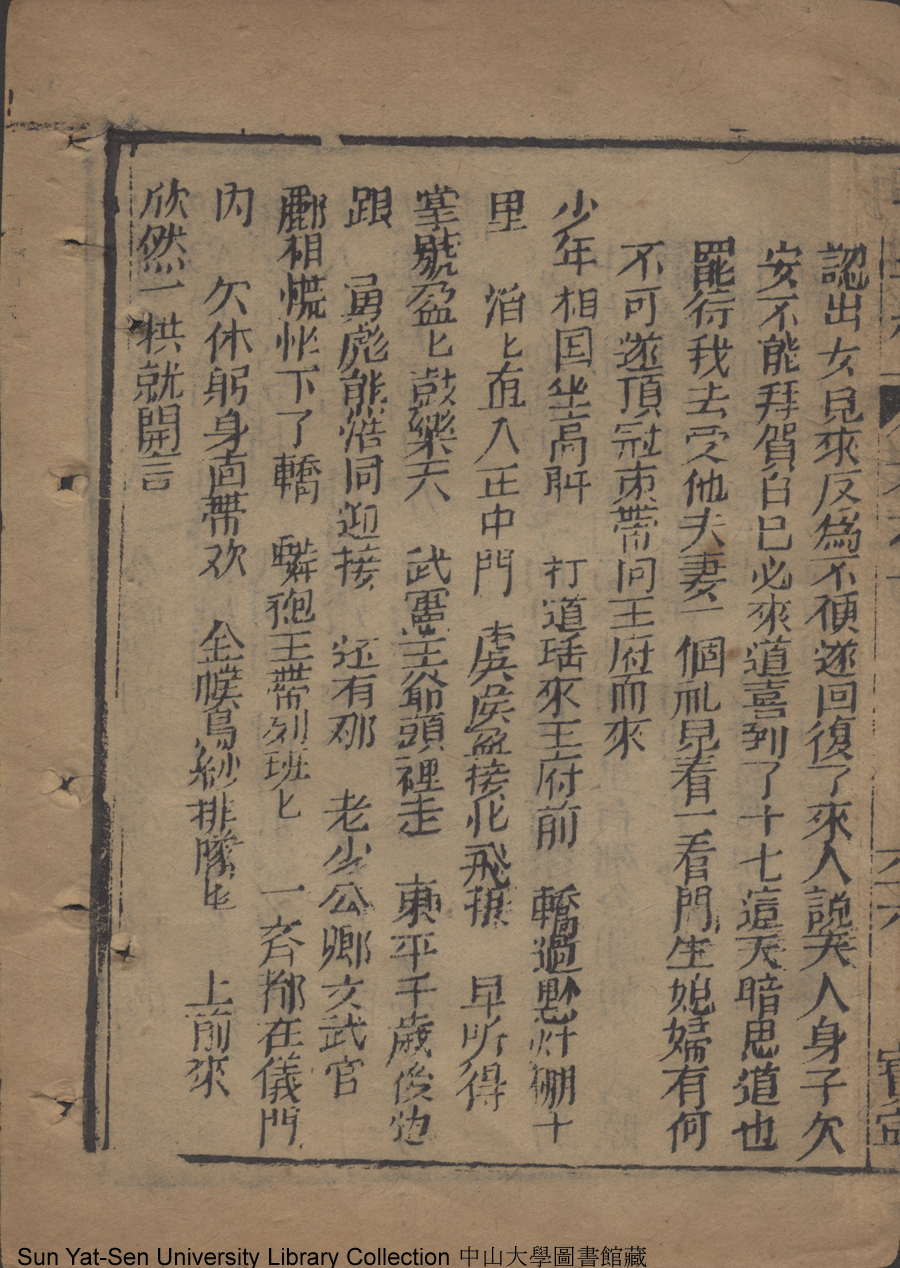 認出女見來反為不便遂回復了來人說夫人身子欠
安不能拜賀自已必來道喜到了十七這天暗思道也
罷待我去受他夫妻一個礼見看一看門生媳婦有何
不可遂頂冠束帶问王府而來
少年相国坐高軒 打道瑤來王府前 轎過魁杆棚十
里 滔匕直入正中門 虞侯盈接北飛 早听得
掌號盈匕鼓樂天 武憲王爺頭裡走 東平千歲後
跟 勇彪能浩同迎接 还有那 老少公卿文武官
酈相慌忙下了轎 麟袍玉帶列班匕 一斉都在儀門
内 欠休躬身面帶欢 金幞烏紗排隊匕 上前來
欣然一拱就開言
Sun Yat-Sen University Library Collection 中山大學圖書館藏